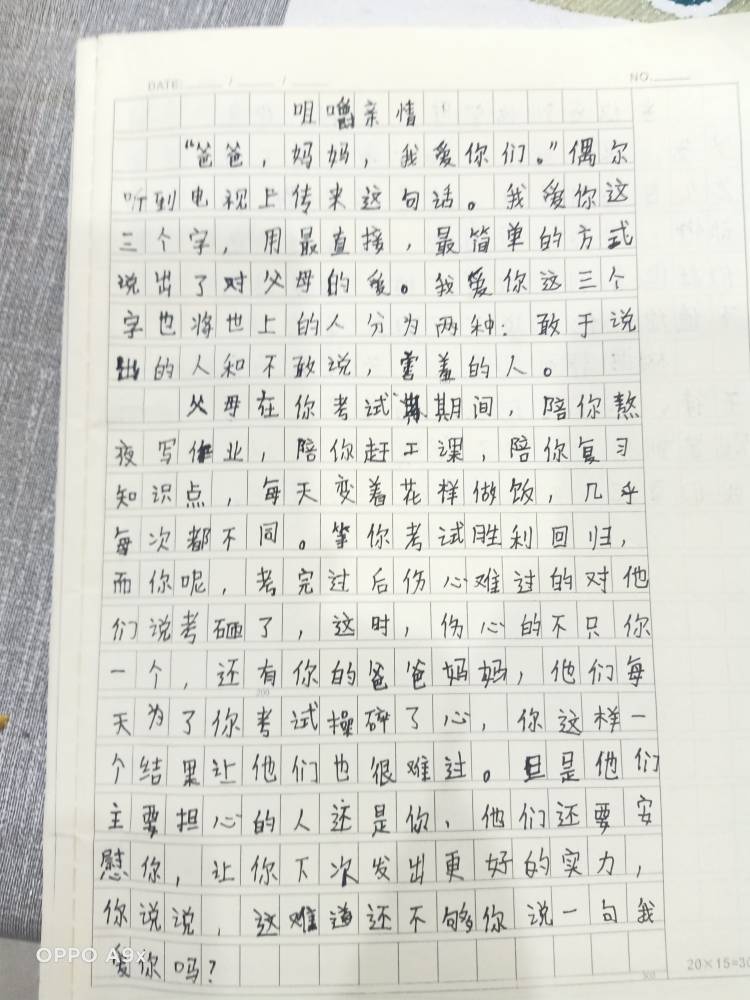 DATE: / /
NO.
咀嚼亲情
“爸爸，妈妈，我爱你们。”偶尔
听到电视上传来这句话。我爱你这
三个字，用最直接，最简单的方式
说出了对父母的爱。我爱你这三个
字也将世上的人分为两种：敢于说
出的人和不敢说，害羞的人。
父母在你考试期间，陪你熬
夜写作业，陪你赶工课，陪你复习
知识点，每天变着花样做饭，几乎
每次都不同。等你考试胜利回归，
而你呢，考完过后伤心难过的对他
们说考砸了，这时，伤心的不只你
一个，还有你的爸爸妈妈，他们每
200
天为了你考试操碎了心，你这样一
个结果让他们也很难过。但是他们
主要担心的人还是你、他们还要安
慰你，让你下次发出更好的实力，
你说说，这难道还不够你说一句我
爱你吗？
300
20×15=30
OPPO A9x